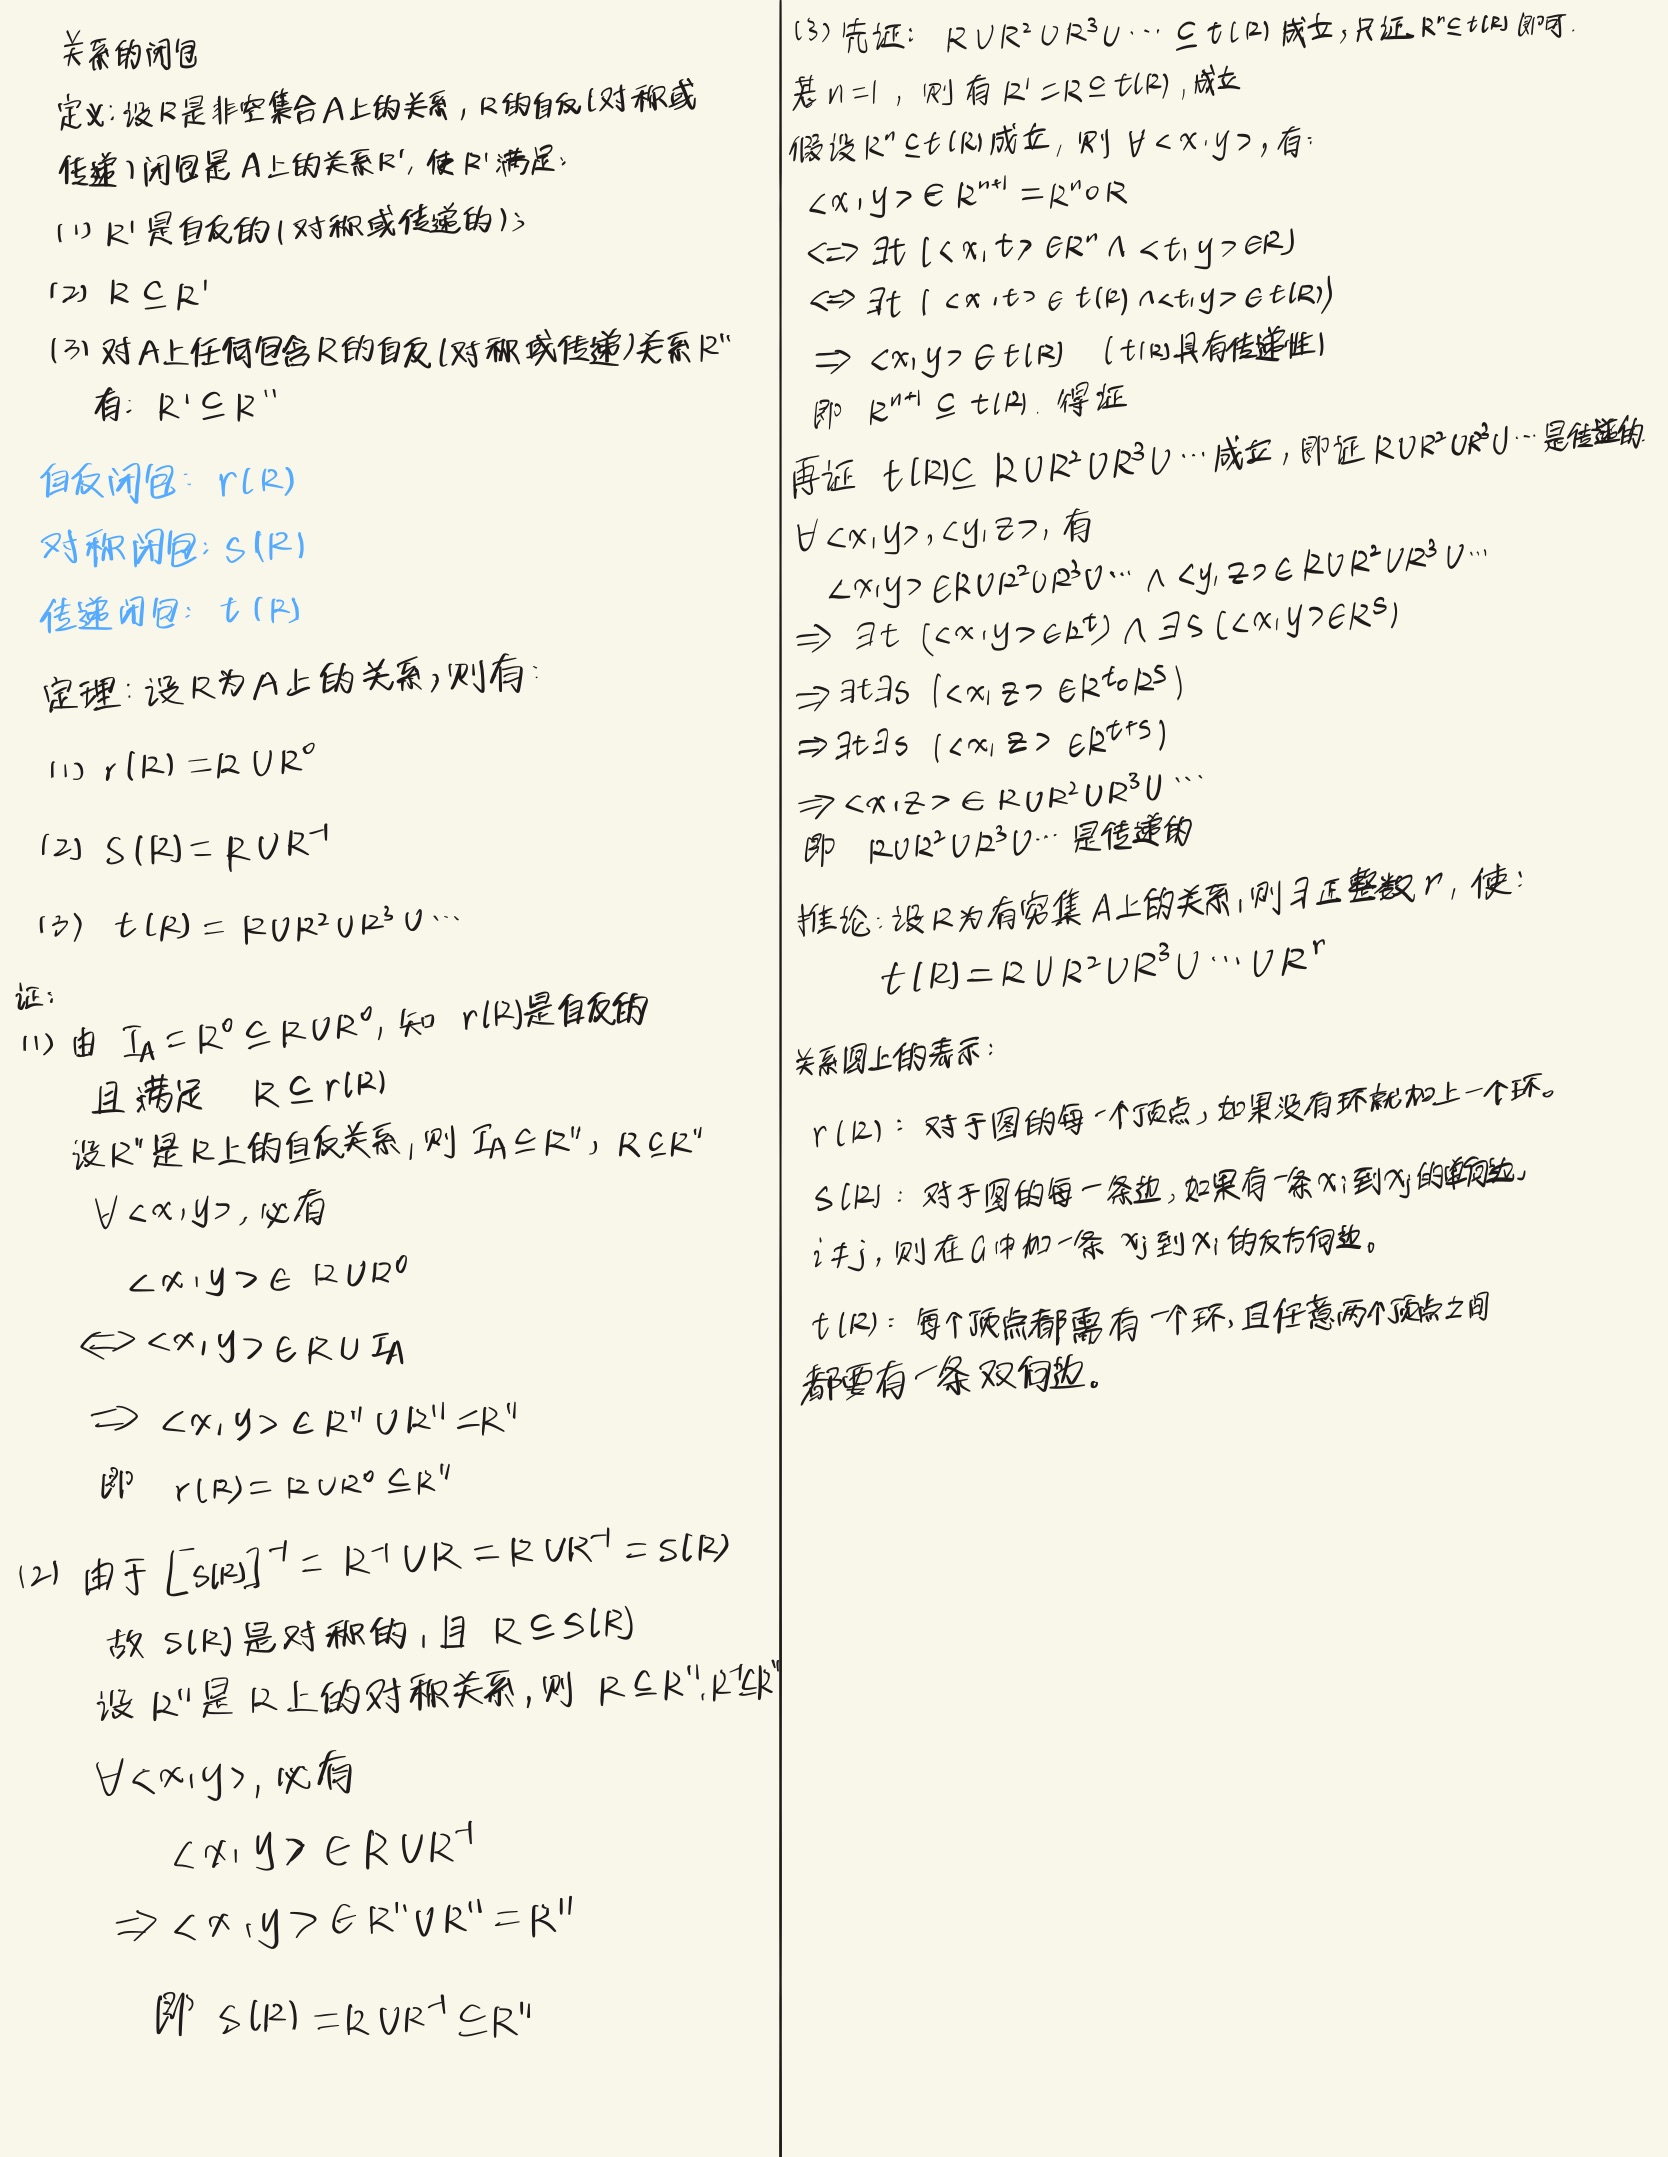 关系的闭包
定义:设R是非空集合A上的关系,R的自反(对称或
传递)闭包是A上的关系R',使R'满足:
(1) R'是自反的(对称或传递的);
(2) R⊆R'
(3) 对A上任何包含R的自反(对称或传递)关系R''
有: R'⊆R''
自反闭包: r(R)
对称闭包: s(R)
传递闭包: t(R)
定理:设R为A上的关系,则有:
(1) r(R)=R∪R⁰
(2) S(R)=R∪R⁻¹
(3) t(R)=R∪R²∪R³∪…
证:
(1) 由 I_A=R⁰⊆R∪R⁰,知 r(R)是自反的
且满足 R⊆r(R)
设R''是R上的自反关系,则 I_A⊆R'', R⊆R''
∀<x,y>,必有
<x,y>∈R∪R⁰
⟺<x,y>∈R∪I_A
⇒<x,y>∈R''∪R''=R''
即 r(R)=R∪R⁰⊆R''
(2) 由于[S(R)]⁻¹=R⁻¹∪R=R∪R⁻¹=S(R)
故 S(R)是对称的,且 R⊆S(R)
设R''是R上的对称关系,则 R⊆R'',R⁻¹⊆R''
∀<x,y>,必有
<x,y>∈R∪R⁻¹
⇒<x,y>∈R''∪R''=R''
即 S(R)=R∪R⁻¹⊆R''
(3) 先证: R∪R²∪R³∪…⊆t(R)成立,只证Rⁿ⊆t(R)即可.
基n=1,则有R¹=R⊆t(R),成立
假设Rⁿ⊆t(R)成立,则∀<x,y>,有:
<x,y>∈Rⁿ⁺¹=Rⁿ∘R
<=>∃t(<x,t>∈Rⁿ∧<t,y>∈R)
<=>∃t(<x,t>∈t(R)∧<t,y>∈t(R))
⇒<x,y>∈t(R) (t(R)具有传递性)
即 Rⁿ⁺¹⊆t(R). 得证
再证 t(R)⊆R∪R²∪R³∪…成立,即证R∪R²∪R³∪…是传递的
∀<x,y>,<y,z>,有
<x,y>∈R∪R²∪R³∪…∧<y,z>∈R∪R²∪R³∪…
⇒∃t(<x,y>∈Rᵗ)∧∃s(<x,y>∈Rˢ)
⇒∃t∃s(<x,z>∈Rᵗ∘Rˢ)
⇒∃t∃s(<x,z>∈Rᵗ⁺ˢ)
⇒<x,z>∈R∪R²∪R³∪…
即 R∪R²∪R³∪…是传递的
推论:设R为有穷集A上的关系,则∃正整数r,使:
t(R)=R∪R²∪R³∪…∪Rʳ
关系图上的表示:
r(R):对于图的每一个顶点,如果没有环就加上一个环。
S(R):对于图的每一条边,如果有一条xᵢ到xⱼ的单向边,
i≠j,则在G中加一条xⱼ到xᵢ的反方向边。
t(R):每个顶点都需有一个环,且任意两个顶点之间
都要有一条双向边。